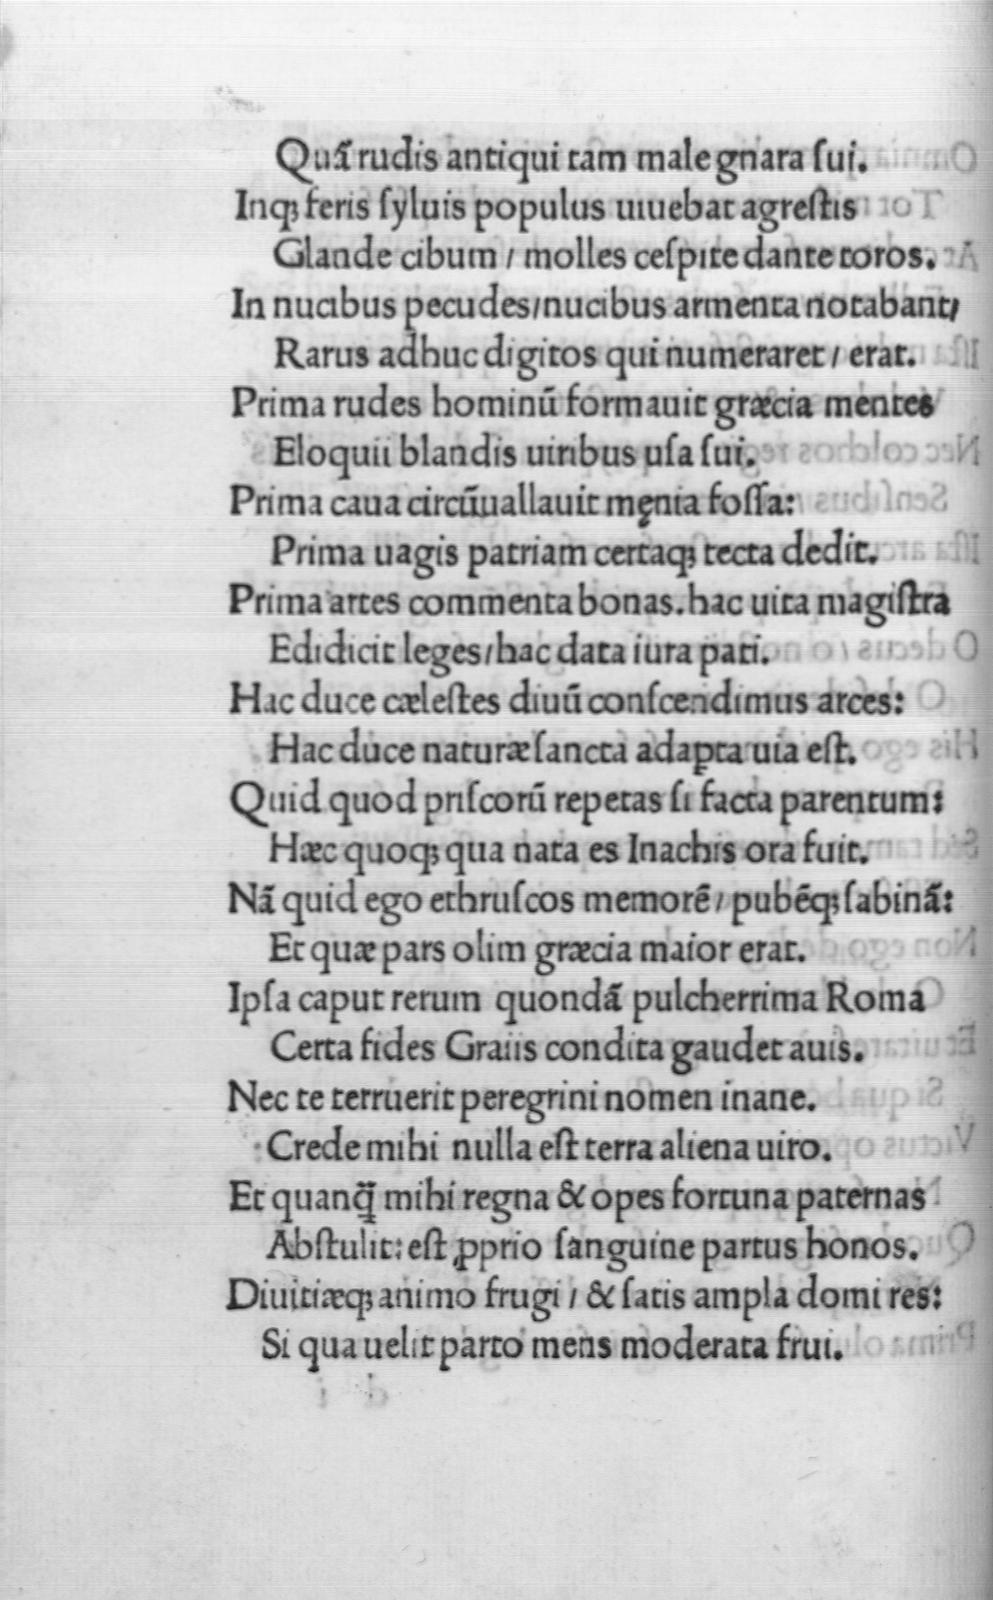 Quã rudis antiqui tam male gnara ſui.
Inqꝫ feris ſyluis populus uiuebat agreſtis
Glande cibum / molles ceſpite dante toros.
In nucibus pecudes/nucibus armenta notabant/
Rarus adhuc digitos qui numeraret / erat.
Prima rudes hominũ formauit græcia mentes
Eloquii blandis uiribus uſa ſui.
Prima caua circũuallauit męnia foſſa:
Prima uagis patriam certaqꝫ tecta dedit.
Prima artes commenta bonas. hac uita magiſtra
Edidicit leges/hac data iura pati.
Hac duce cæleſtes diuũ conſcendimus arces:
Hac duce naturæ ſancta adapta uia eſt.
Quid quod priſcorũ repetas ſi facta parentum:
Hæc quoqꝫ qua nata es Inachis ora fuit.
Nã quid ego ethruſcos memorẽ / pubẽqꝫ ſabinã:
Et quæ pars olim græcia maior erat.
Ipſa caput rerum quondã pulcherrima Roma
Certa fides Graiis condita gaudet auis.
Nec te terruerit peregrini nomen inane.
Crede mihi nulla eſt terra aliena uiro.
Et quanq̃ mihi regna & opes fortuna paternas
Abſtulit: eſt ꝓprio ſanguine partus honos.
Diuitiæqꝫ animo frugi / & ſatis ampla domi res:
Si qua uelit parto mens moderata frui.